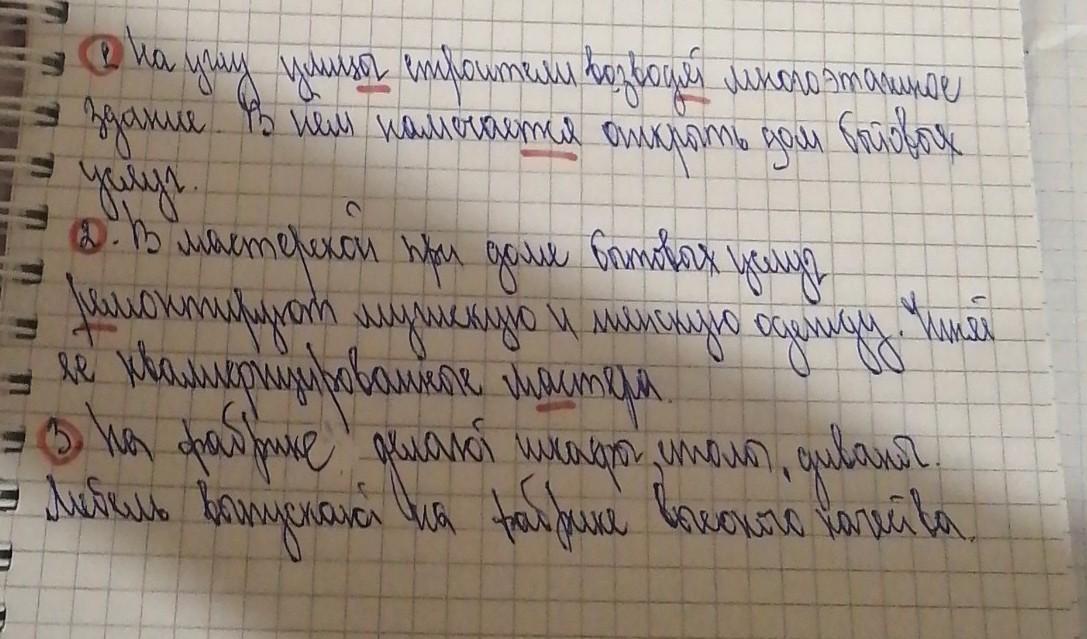 1 На углу улицы строители возводят многоэтажное
здание. В нем намечается открыть дом бытовых
услуг.
2. В мастерской при доме бытовых услуг
ремонтируют мужскую и женскую одежду. Шьют
ее квалифицированные мастера.
3 На фабрике делают шкафы, столы, диваны.
Мебель выпускают на фабрике высокого качества.